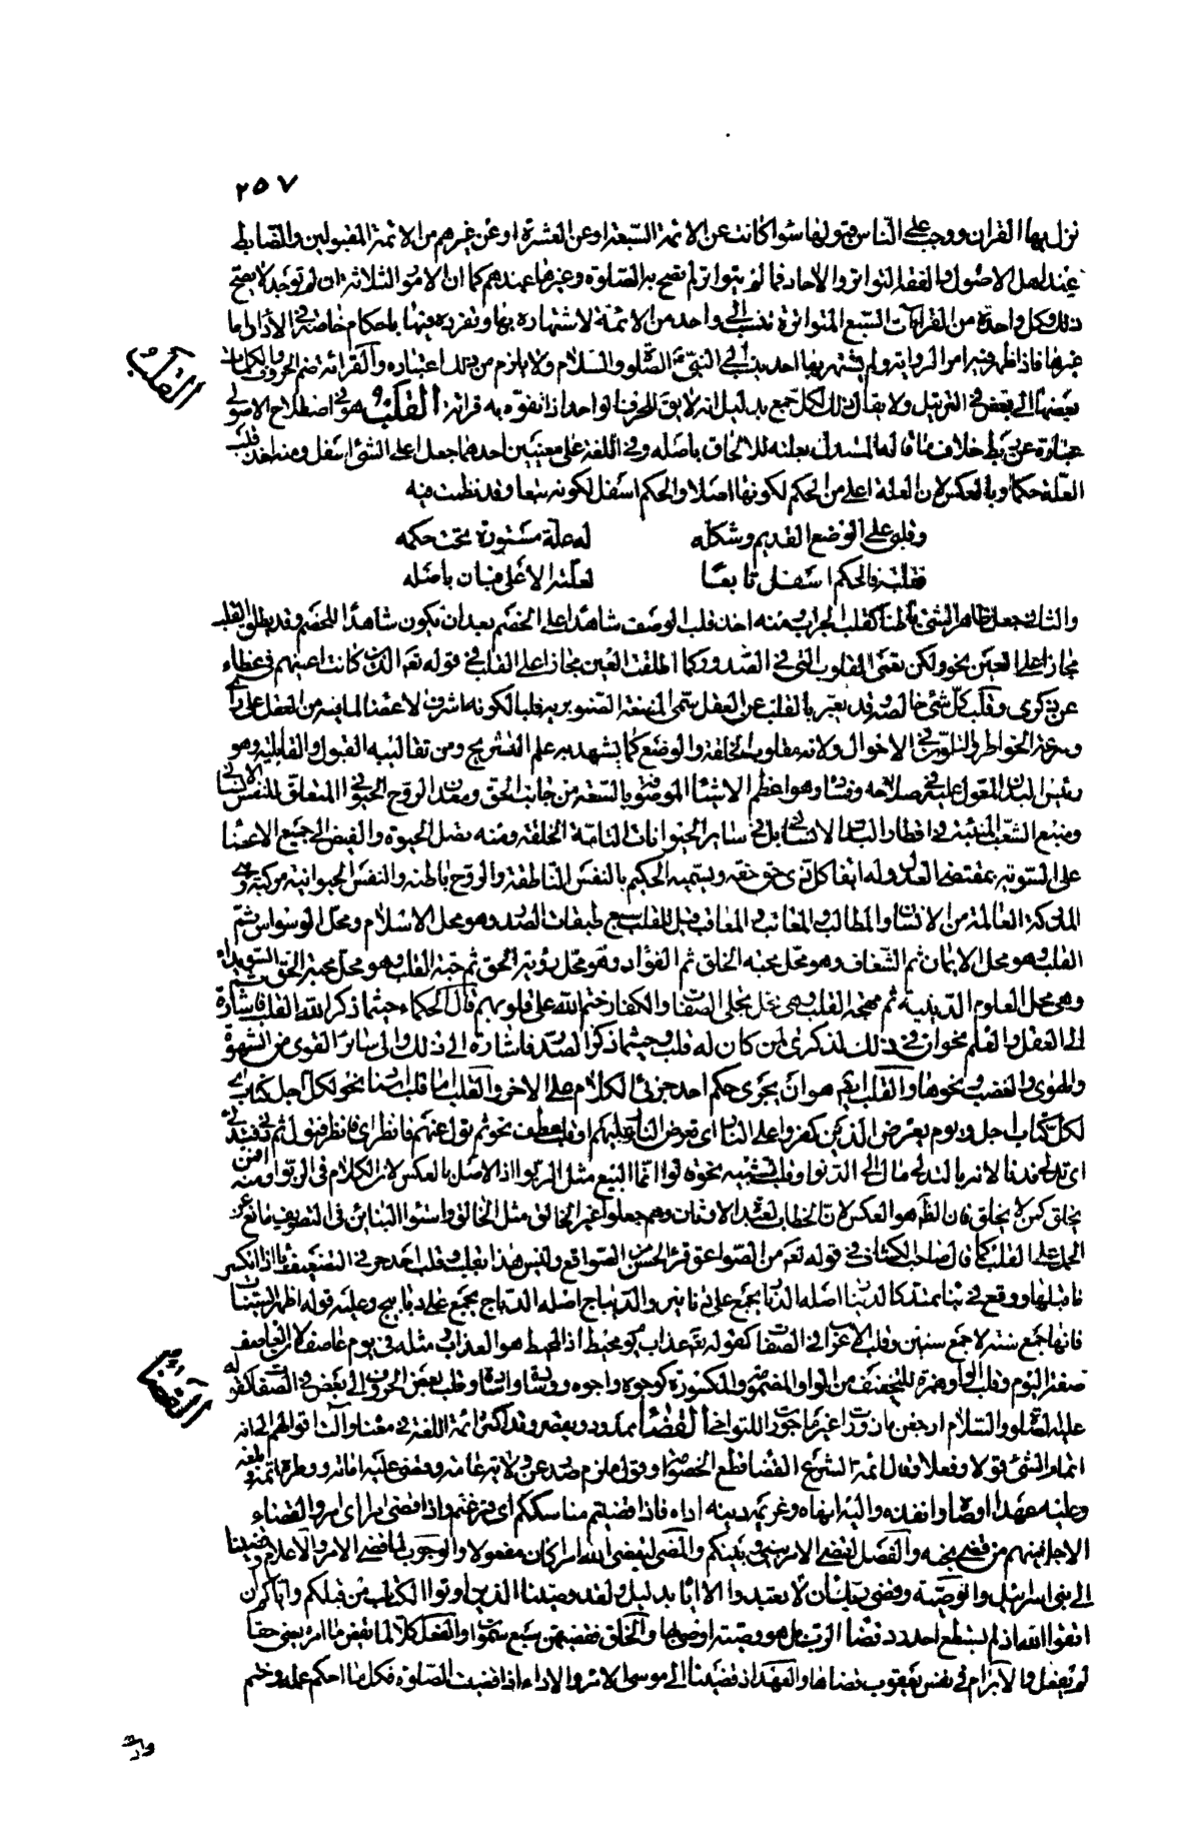 ٢٥٧
نزل بها القران ووجب على الناس قبولها سوا كانت عن الائمة السبعة او عن العشرة او عن غيرهم من الائمة المقبولين والضابط
عند اهل الاصول والفقه التواتر والاحاد فما لم يتواتر لم تصح به الصلوة وغيرها عندهم كما ان الامور الثلاثة ان لم توجد لا يصح
ذلك وكل واحدة من القراآت السبع المتواترة تنسب الى واحد من الائمة لاشتهاره بها وتفرده فيها باحكام خاصة في الأداء
القلب
بعضها الى بعض في الترتيل ولا يقال ذلك لكل جمع بدليل انه لا يقال للحرف الواحد اذا تفوه به قراءة القلب هو في اصطلاح الاصولي
عبارة عن ربط خلاف ما قاله المستدل بعلته للالحاق باصله وفي اللغة على معنيين احدهما جعل اعلى الشئ اسفل ومنه اخذ قلب
العلة حكما وبالعكس لان العلة اعلى من الحكم لكونها اصلا والحكم اسفل لكونه تبعا وقد نظمت فيه
وقلبي على الوضع القديم وشكله له علة مستورة تحت حكمه
فقلبته فالحكم اسفل تابعا لعلته الاعلى فبان باصله
والثاني جعل ظاهر الشئ باطنا كقلب الجراب ومنه اخذ قلب الوصف شاهدا على الخصم بعد ان يكون شاهدا للخصم وقد يطلق القلب
مجازا على العين نحو ولكن تعمى القلوب التي في الصدور كما اطلقت العين مجازا على القلب في قوله تعم الذين كانت اعينهم في غطاء
عن ذكرى وقلب كل شئ خالصه وقد يعبر بالقلب عن العقل سمى المضغة الصنوبرية قلبا لكونه اشرف الاعضا لما فيه من العقل على رأى
وسرعة الخواطر والتلون في الاحوال ولانه مقلوب الخلقة والوضع كما يشهد به علم التشريح ومن تقاليبه القبول والقابلية وهو
رئيس البدن المعول عليه في صلاحه وفساده وهو اعظم الاشيا الموصوفة بالسعة من جانب الحق ومعدن الروح الحيواني المتعلق للنفس الانساني
ومنبع الشعب المنبثة في اقطار البدن الانساني بل في سائر الحيوانات التامة الخلقة ومنه يصل الحيوة والفيض الى جميع الاعضا
على السوية بمقتضى العدل وله ايفا كل ذي حق حقه ويسميه الحكيم بالنفس الناطقة والروح باطنه والنفس الحيوانية مركبه وهي
المدركة العالمة من الانسان والمطالب والمعاتب والمعاقب قيل للقلب سبع طبقات الصدر وهو محل الاسلام ومحل الوسواس ثم
القلب وهو محل الايمان ثم الشغاف وهو محل محبة الخلق ثم الفؤاد وهو محل رؤية الحق ثم حبة القلب وهو محل محبة الحق ثم السويداء
وهي محل العلوم الدينية ثم مهجة القلب وهي محل تجلى الصفات والكفار ختم الله على قلوبهم قال الحكماء حيثما ذكر الله القلب فاشارة
الى العقل والعلم نحو ان في ذلك لذكرى لمن كان له قلب وحيثما ذكر الصدر فاشارة الى ذلك والى سائر القوى من الشهوة
والهوى والغضب ونحوها والقلب ايضم هو ان يجرى حكم احد جزئي الكلام على الاخر والقلب اما قلب اسناد نحو لكل اجل كتاب اي
لكل كتاب اجل ويوم يعرض الذين كفروا على النار اي تعرض النار عليهم او قلب عطف نحو ثم تول عنهم فانظر اي فانظر فتول ثم دنى فتدلى
اي تدلى فدنا لانه بالتدلى مال الى الدنو او قلب تشبيه نحو قالوا انما البيع مثل الربوا اذ الاصل بالعكس لان الكلام في الربوا ومنه افمن
يخلق كمن لا يخلق فان الظم هو العكس لان الخطاب لعبدة الاوثان وهم جعلوا غير الخالق مثل الخالق واستوا البنائين في التصريف مانع عن
الحمل على القلب كما قال صاحب الكشاف في قوله تعم من الصواعق قرأ الحسن الصواقع وليس هذا بقلب وقلب احد حرفي التضعيف اذا انكسر
ما قبلها ووقع في بنا ممتد كالدينار اصله الدنار يجمع على دنانير والديباج اصله الدباج يجمع على دبابيج
فانها جمع سنة لا جمع سنين وقلب الاعراب في الصفات كقوله تعم عذاب يوم محيط اذ المحيط هو العذاب ومثله في يوم عاصف لان العاصف
القضا
صفة اليوم وقلب الواو همزة للتخفيف من الواو المضمومة والمكسورة كوجوه واجوه ووشاح واشاح وقلب بعض الحروف الى بعض في الصفات كقوله
عليه الصلوة والسلام ارجعن مأزورات غير مأجورات اللتواخى القضا بمد ويقصر وقد اكثر ائمة اللغة في معناه وآلت اقوالهم الى انه
اتمام الشئ قولا وفعلا وقال ائمة الشرع القضا قطع الخصومة او قول ملزم صدر عن ولاية عامة وقضى عليه اماته ووطره اتمه وبلغه
وعليه عهدا اوصاه وانفذه واليه انهاه وغريمه دينه اداه فاذا قضيتم مناسككم اي فرغتم واذا قضى امرا اي امر والقضاء
الاجل فمنهم من قضى نحبه والفصل لقضى الامر بيني وبينكم والمضى ليقضى الله امرا كان مفعولا والوجوب لما قضى الامر والاعلام وقضينا
الى بنى اسرائيل والوصية وقضى ربك ان لا تعبدوا الا اياه بدليل ولقد وصينا الذين اوتوا الكتاب من قبلكم واياكم ان
اتقوا الله اذ لم يستطع احد رد قضا الرب بل هو وصية اوصى بها والخلق فقضيهن سبع سموات والفعل كلا لما يقض ما امره يعنى حقا
لم يفعل والابرام في نفس يعقوب قضاها والعهد اذ قضينا الى موسى الامر والاداء اذا قضيت الصلوة فكل ما احكم عمله وختم